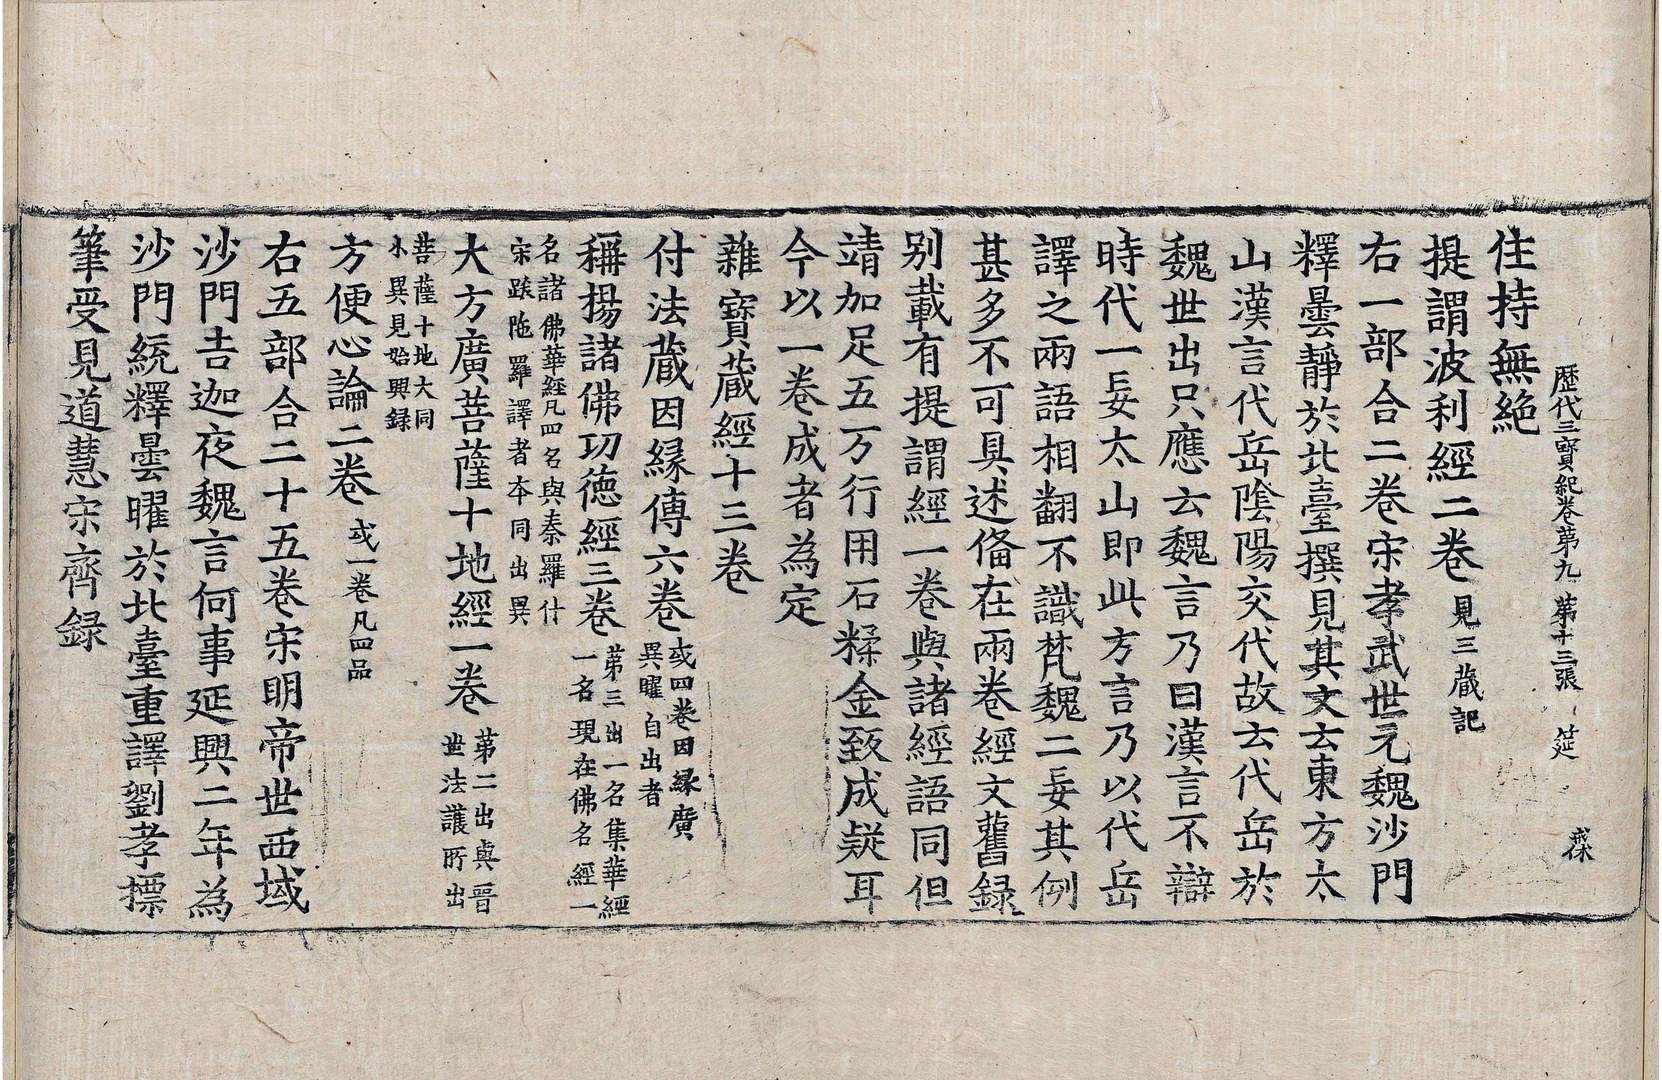 歴代三寳紀卷苐九 苐十三張 筵
住持無絶
提謂波利經二卷 見三藏記
右一部合二卷宋孝武世元魏沙門
釋曇靜於北臺撰見其文云東方太
山漢言代岳隂陽交代故云代岳於
魏世出只應云魏言乃曰漢言不辯
時代一妄太山即此方言乃以代岳
譯之兩語相翻不識梵魏二妄其例
甚多不可具述俻在兩卷經文舊録
别載有提謂經一卷與諸經語同但
靖加足五方行用石糅金致成疑耳
今以一卷成者為定
雜寳藏經十三卷
付法蔵因縁傳六卷 或四卷因縁廣
異曜自出者
稱揚諸佛功德經三卷 苐三出一名集華經
一名現在佛名經一
名諸佛華經凡四名與秦羅什
宋跋陁羅譯者本同出異
大方廣菩薩十地經一卷 苐二出與晋
世法護所出
菩薩十地大同
小異見始興録
方便心論二卷 或一卷凡四品
右五部合二十五卷宋明帝世西域
沙門吉迦夜魏言何事延興二年為
沙門統釋曇曜於北臺重譯劉孝標
筆受見道慧宋齊録